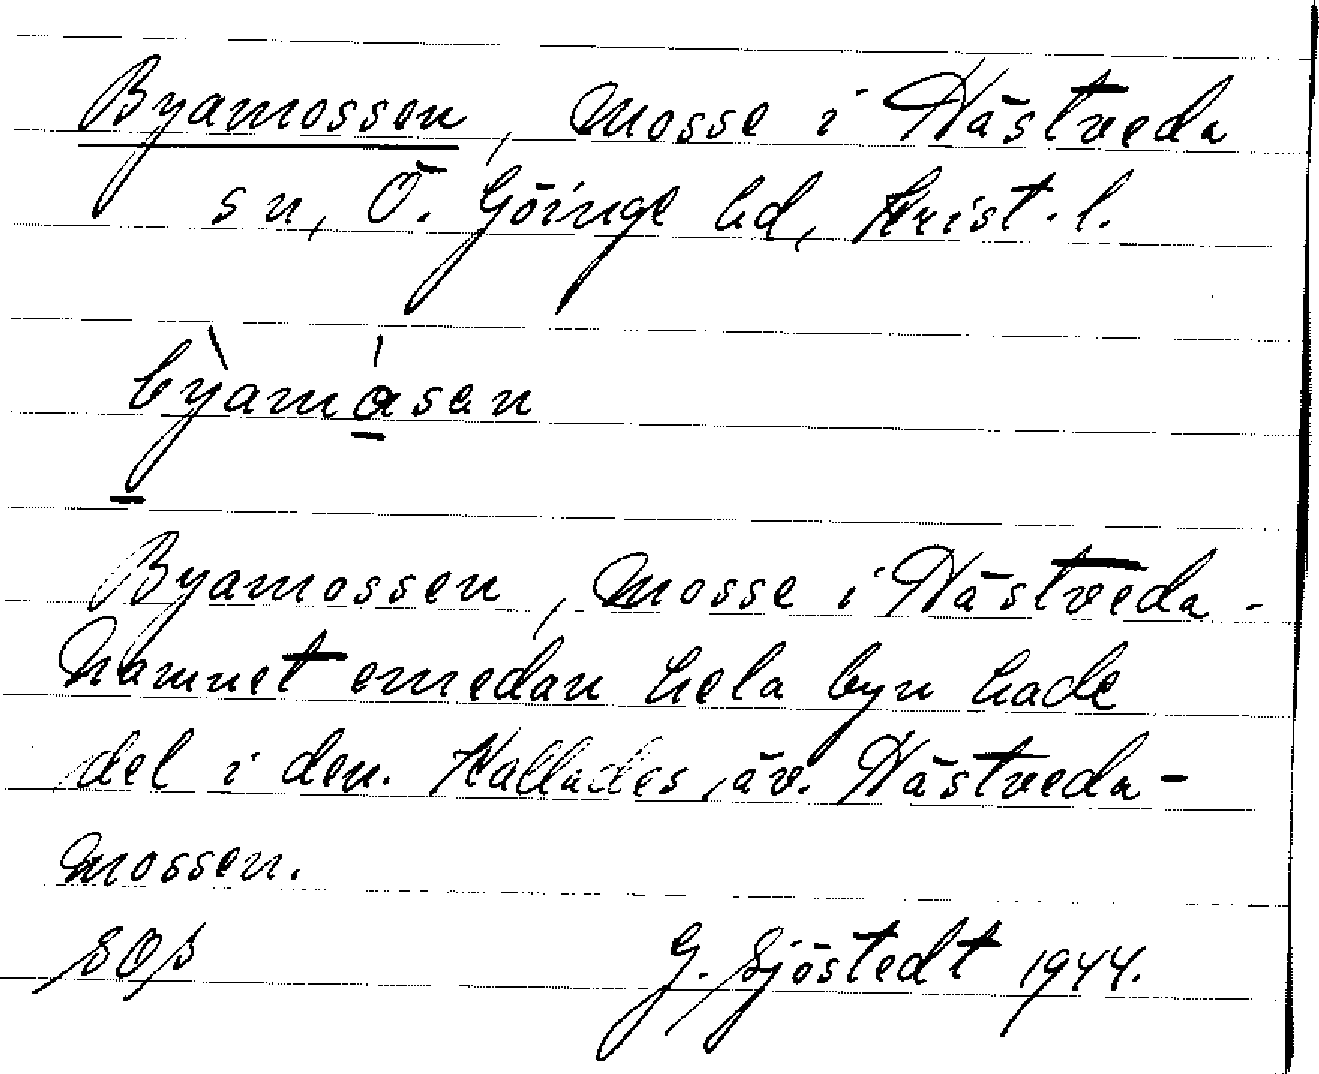 Byamossen, mosse i Hästveda
sn, Ö. Göinge hd, Krist. l.
bỳamásan
Byamossen, mosse i Hästveda.
Namnet emedan hela byn hade
del i den. Kallades äv. Hästveda-
mossen.
SOS G. Sjöstedt 1944.